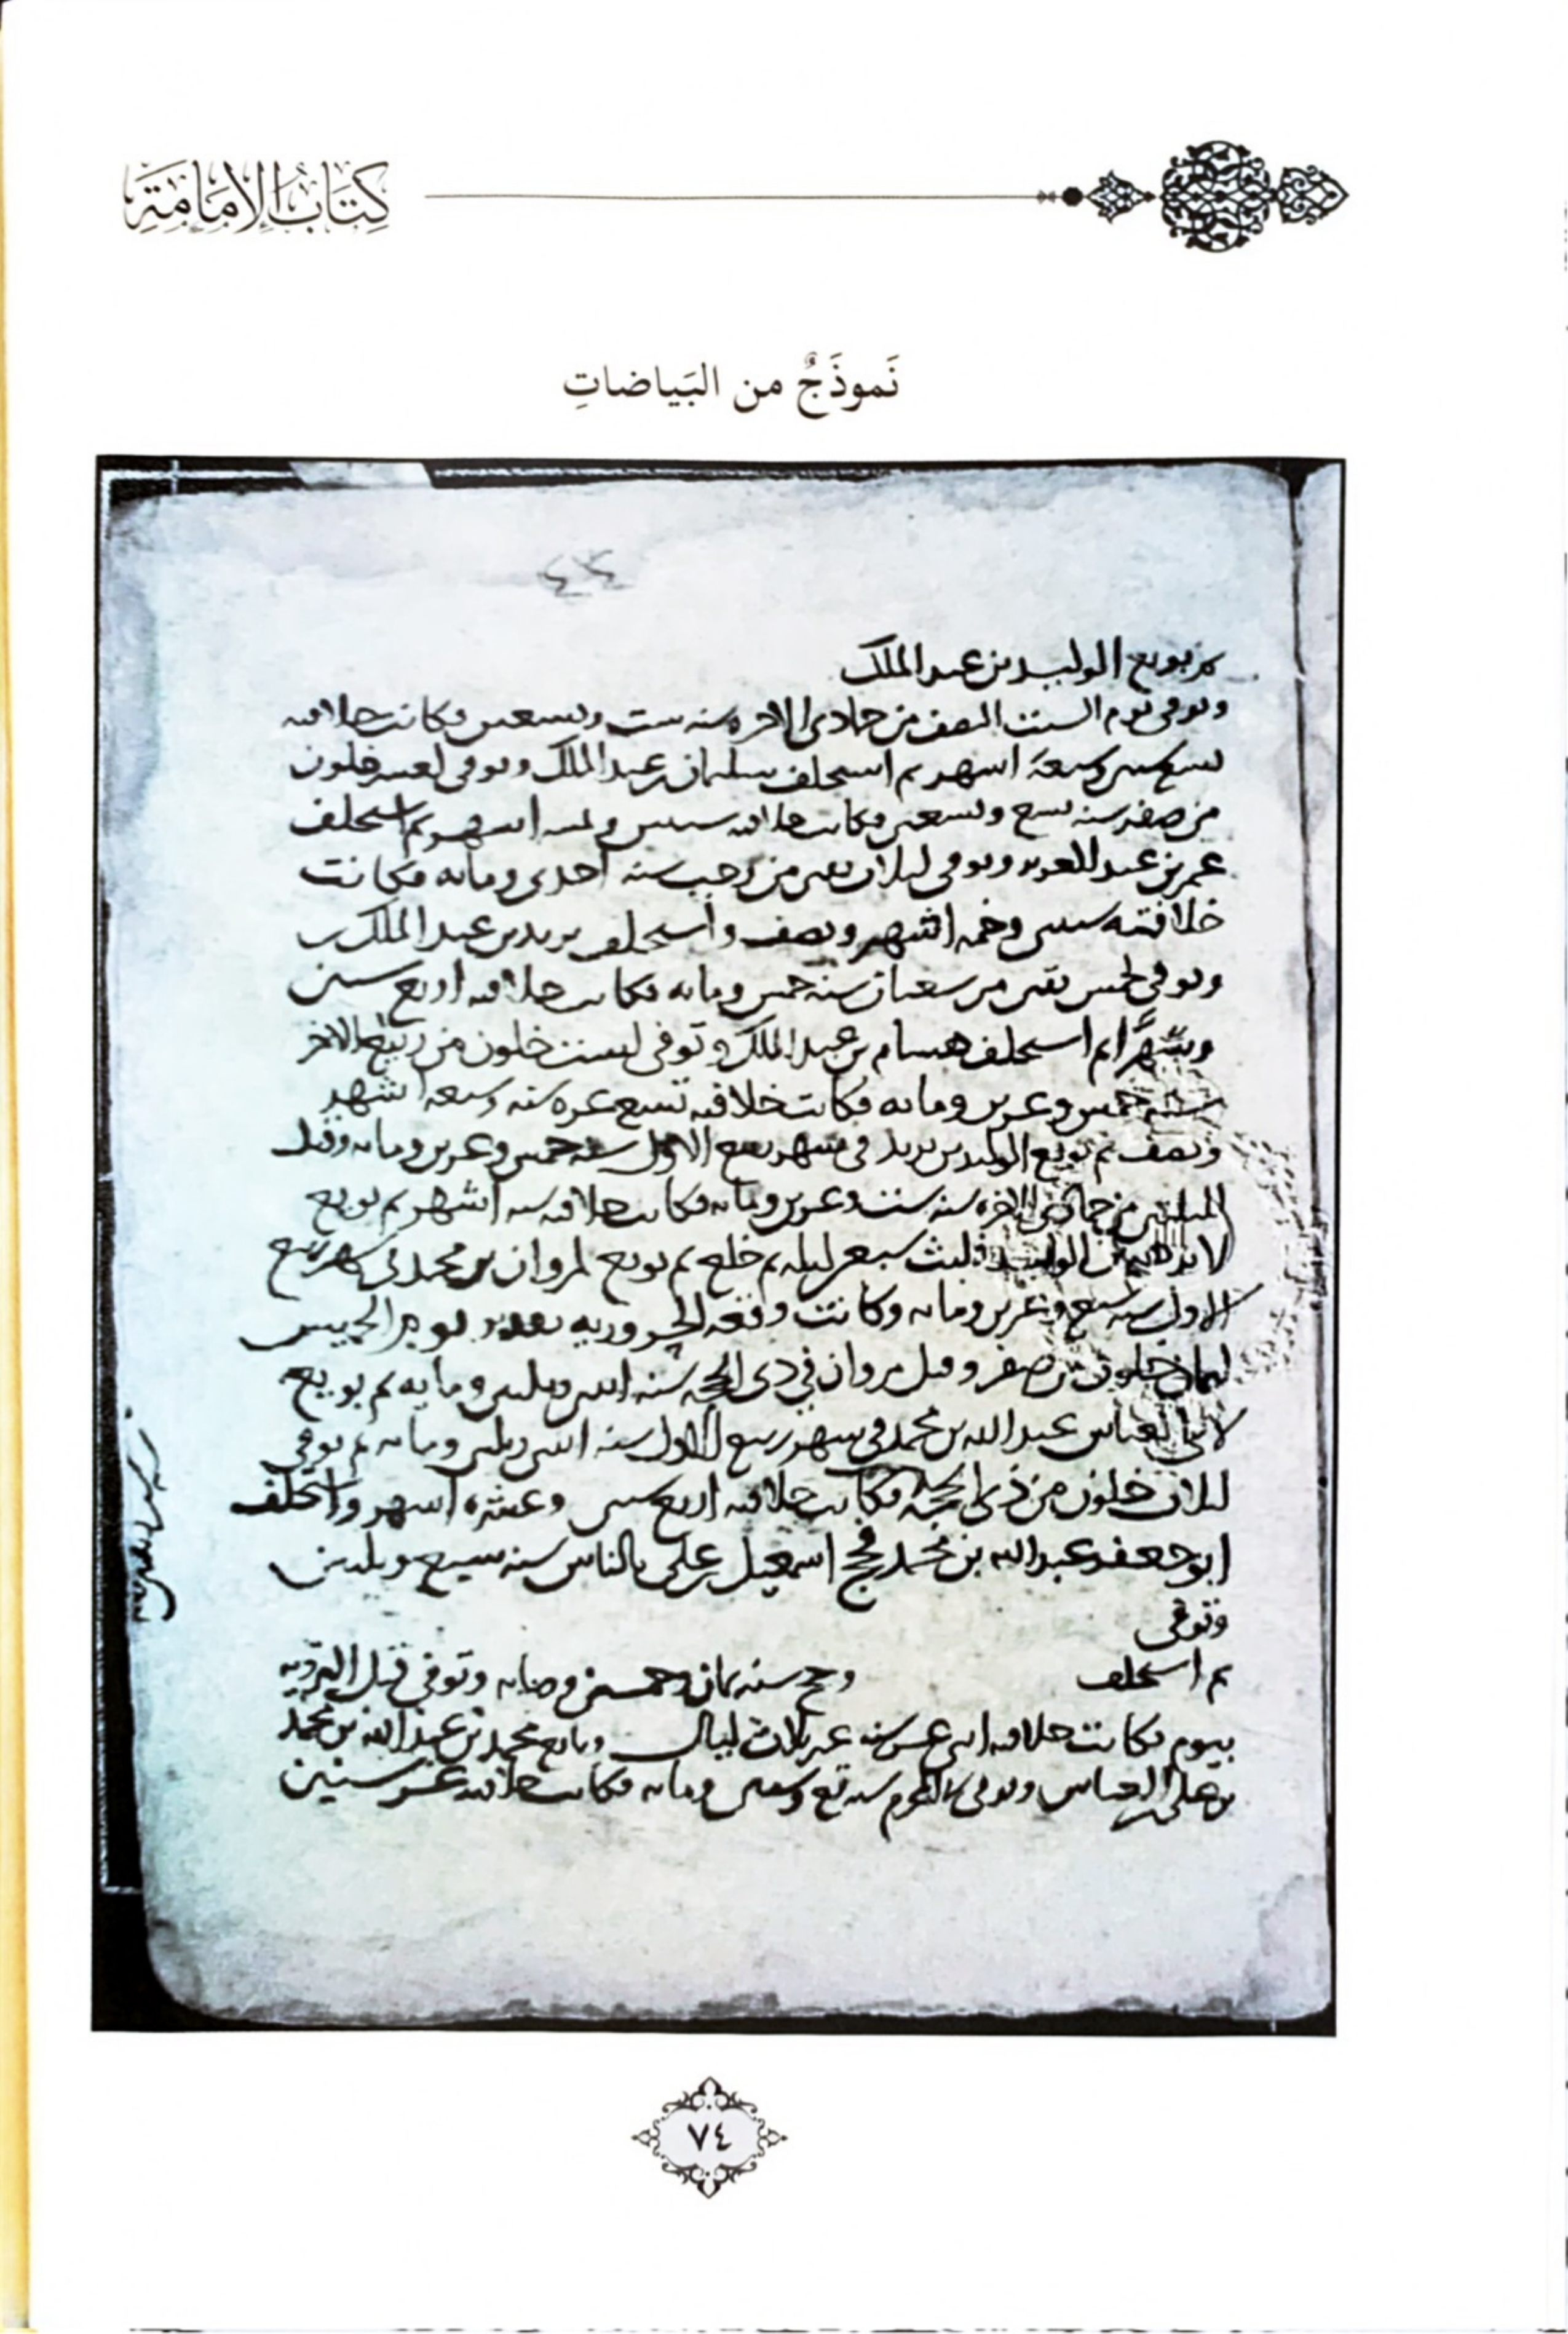 كِتَابُ الإِمَامَةِ
نَموذَجٌ من البَياضاتِ
٤٤
بويع الوليد بن عبد الملك
وتوفى يوم السبت النصف من جمادى الاخره سنه ست وتسعين فكانت خلافته
تسع سنين وسبعة اسهر ثم استخلف سليمان بن عبد الملك وتوفى لعشر خلون
من صفر سنه تسع وتسعين فكانت خلافته سنتين اسهر ثم استخلف
عمر بن عبد العزيز وتوفى من رجب سنه احدى ومايه فكانت
خلافته سنتين وخمسه اشهر ونصف واستخلف يزيد بن عبد الملك
وتوفى لخمس بقين من شعبان سنه خمس ومايه فكانت خلافته اربع سنين
وشهرًا ثم استخلف هشام بن عبد الملك وتوفى لست خلون من ربيع الاخر
سنه خمس وعشرين ومايه فكانت خلافته تسع عشره سنه وسبعه اشهر
ونصف ثم بويع الوليد بن يزيد فى شهر ربيع الاول سنه خمس وعشرين ومايه وقتل
لليلتين من جمادى الاخره سنه ست وعشرين ومايه فكانت خلافته اشهر ثم بويع
لابرهيم بن الوليد فلبث سبعين ليله ثم خلع ثم بويع لمروان بن محمد فى شهر ربيع
الاول سنه سبع وعشرين ومايه وكانت وقعه الحروريه يوم الخميس
لثمان خلون من صفر وقتل مروان في ذى الحجه سنه اثنتين وثلثين ومايه ثم بويع
لابي العباس عبد الله بن محمد فى شهر ربيع الاول سنه اثنتين وثلثين ومايه ثم توفي
لثلاث خلون من ذى الحجه فكانت خلافته اربع سنين وعشره اشهر واستخلف
ابو جعفر عبد الله بن محمد فحج اسمعيل بن على بالناس سنه سبع وثلثين
وتوفى
ثم استخلف وحج سنه ثمان وخمسين ومايه وتوفي قبل الترويه
بيوم فكانت خلافته سنه غير ثلاث ليال وبايع محمد بن عبد الله بن محمد
بن على بن العباس وتوفى المحرم سنه تسع وستين ومايه فكانت خلافته عشر سنين
٧٤